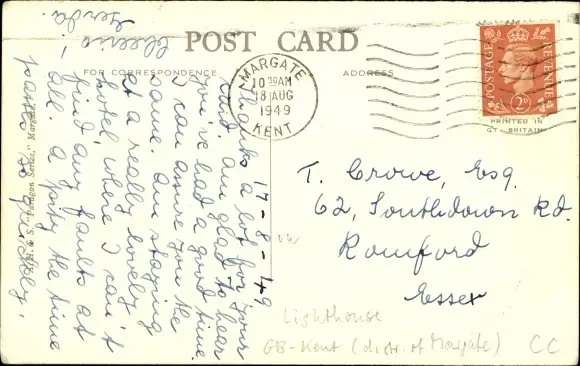 POST CARD
FOR CORRESPONDENCE
ADDRESS
17-8-49
Thanks a lot for your
card. Am glad to hear
you've had a good time.
I can assure you the
same. Am staying
at a really lovely
hotel, where I can't
find any faults at
all. A pity the time
passes so quickly.
Cheerio!
Gerda.
S. "Paragon Series," Margate
MARGATE
KENT
10 30AM
18 AUG
1949
POSTAGE
REVENUE
2D
PRINTED IN
GT. BRITAIN
T. Crowe, Esq.
62, Southdown Rd.
Romford
Essex
Lighthouse
GB-Kent (distr. of Margate)
CC